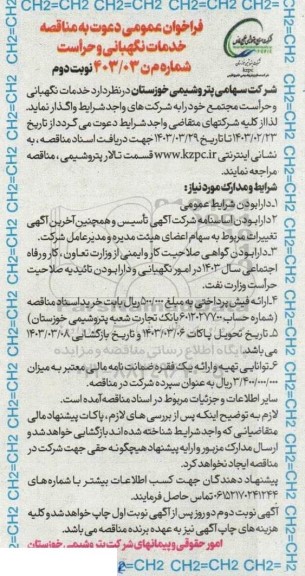 فراخوان عمومی دعوت به مناقصه
خدمات نگهبانی و حراست
شماره م ن ۴۰۳/۰۳ نوبت دوم
شرکت سهامی پتروشیمی خوزستان در نظر دارد خدمات نگهبانی
و حراست مجتمع خود را به شرکت های واجد شرایط واگذار نماید.
لذا از کلیه شرکتهای متقاضی واجد شرایط دعوت می گردد از تاریخ
۱۴۰۳/۰۲/۲۳ تا تاریخ ۱۴۰۳/۰۳/۲۹ جهت دریافت اسناد مناقصه ، به
نشانی اینترنتی www.kzpc.ir قسمت تالار پتروشیمی ، مناقصه
مراجعه نمایند.
شرایط و مدارک مورد نیاز :
۱.دارا بودن شرایط عمومی
۲.دارا بودن اساسنامه شرکت آگهی تأسیس و همچنین آخرین آگهی
تغییرات مربوط به سهام اعضای هیئت مدیره و مدیر عامل شرکت.
۳.دارا بودن گواهی صلاحیت کار و ایمنی از وزارت تعاون ، کار و رفاه
اجتماعی سال ۱۴۰۳ در امور نگهبانی و دارا بودن تائیدیه صلاحیت
حراست وزارت نفت.
۴.ارائه فیش پرداختی به مبلغ ۵۰۰/۰۰۰ ریال بابت خرید اسناد مناقصه
(شماره حساب ۶۰۱۳۰۲۷۷۰۰ بانک تجارت شعبه پتروشیمی خوزستان)
۵.تاریخ تحویل پاکات ۱۴۰۳/۰۳/۰۶ و تاریخ بازگشایی ۱۴۰۳/۰۳/۰۸
می باشد.
۶.توانایی تهیه و ارائه یک فقره ضمانت نامه مالی معتبر به میزان
۳/۴۰۰/۰۰۰/۰۰۰ ریال به عنوان سپرده شرکت در مناقصه.
سایر اطلاعات و جزئیات مربوط در اسناد مناقصه آمده است.
لازم به توضیح اینکه پس از بررسی های لازم ، پاکات پیشنهاد مالی
متقاضیانی که واجد شرایط شناخته شده اند بازگشایی خواهد شد و
ارسال مدارک مزبور و ارایه پیشنهاد هیچگونه حقی جهت شرکت در
مناقصه ایجاد نخواهد کرد.
پیشنهاد دهندگان جهت کسب اطلاعات بیشتر با شماره های
۰۶۱۵۲۱۷۰۲۴۱۲۴۴ تماس حاصل فرمایند.
آگهی نوبت دوم دو روز پس از آگهی نوبت اول چاپ خواهد شد و کلیه
هزینه های چاپ آگهی نیز به عهده برنده مناقصه می باشد.
امور حقوقی و پیمانهای شرکت پتروشیمی خوزستان